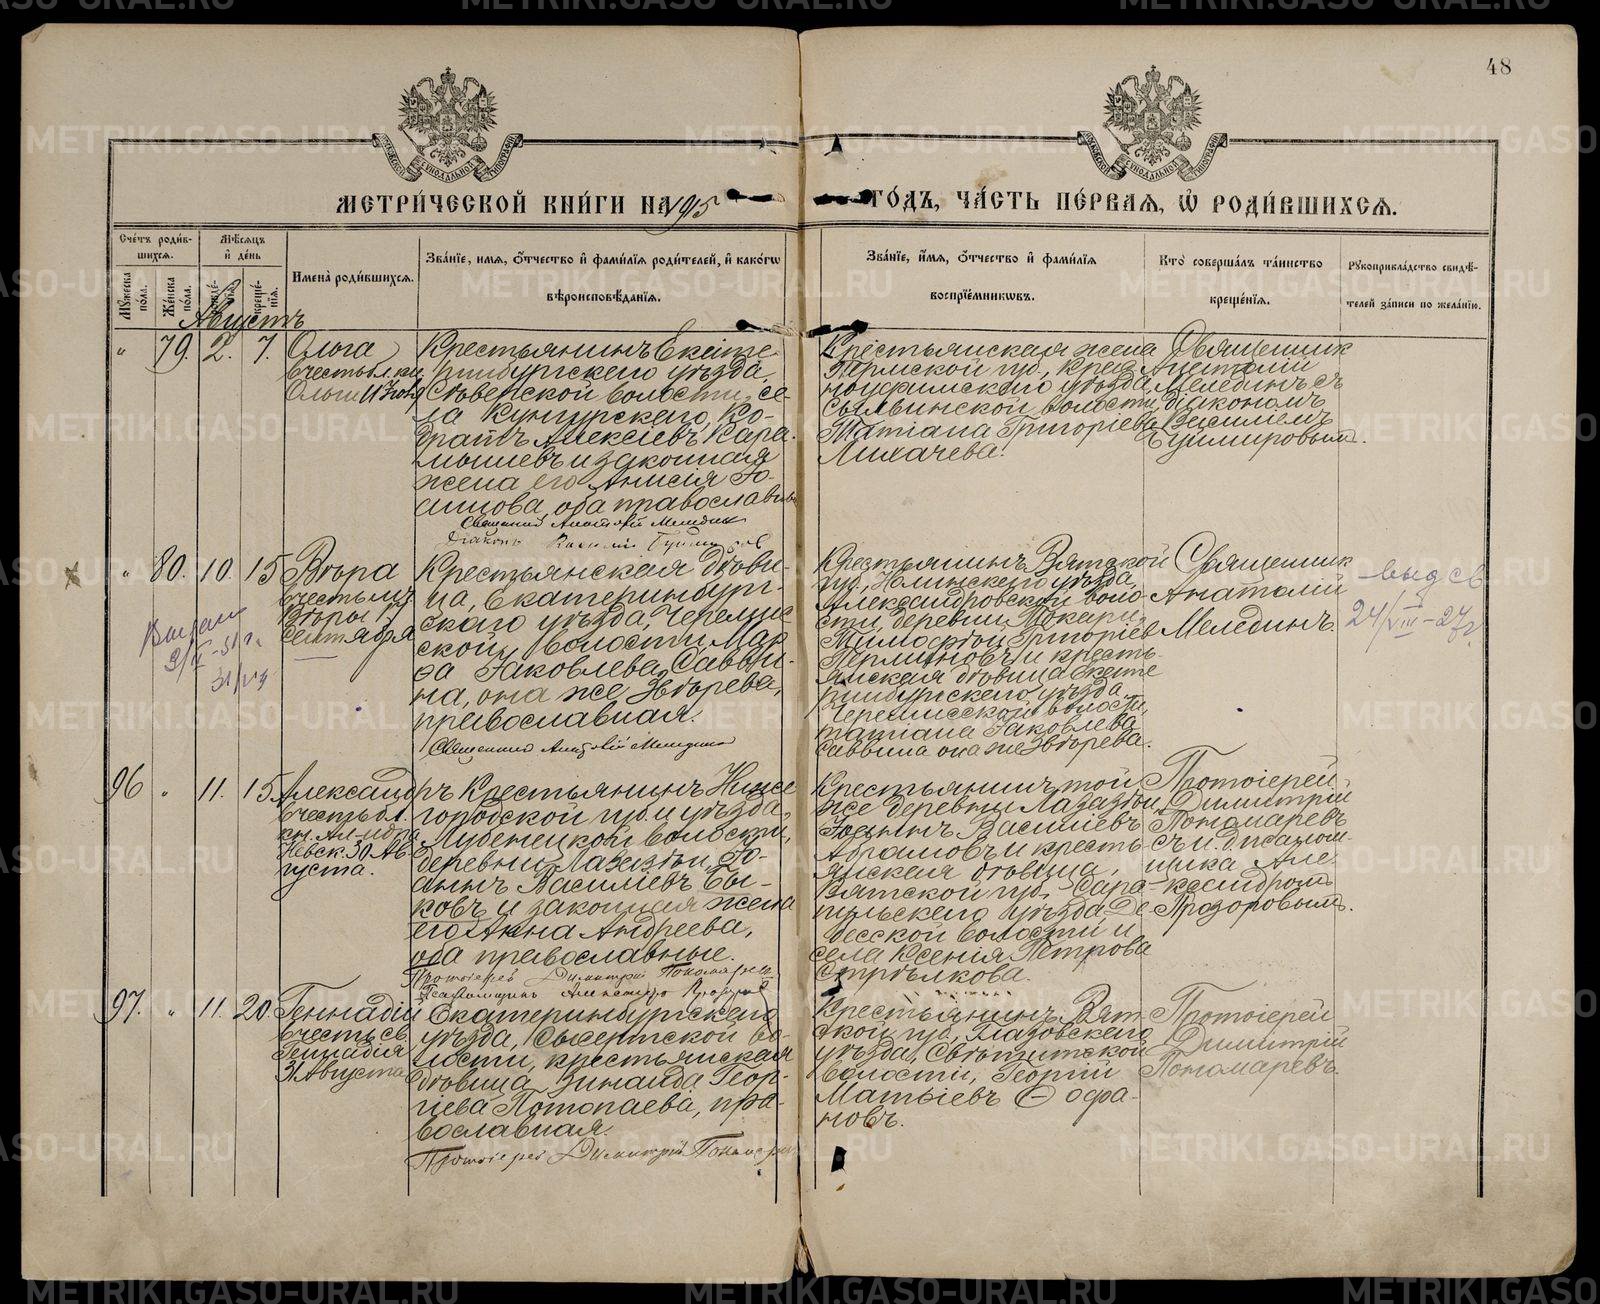 48
МЕТРИ́ЧЕСКОЙ КНИ́ГИ НА 1915 ГО́ДЪ, ЧА́СТЬ ПЕ́РВАЯ, Ѽ РОДИ́ВШИХСЯ.
Сче́тъ роди́вшихся.
Мѣ́сяцъ и҆ де́нь
И҆мена̀ роди́вшихся.
Зва́нїе, и҆́мя, ѻ҆́тчество и҆ фами́лїя роди́телей, и҆ како́гѡ
вѣроисповѣ́данїя.
Зва́нїе, и҆́мя, ѻ҆́тчество и҆ фами́лїя
воспрїе́мникѡвъ.
Кто̀ соверша́лъ та́инство
креще́нїя.
Рꙋкоприкла́дство свидѣ́-
телей за́писи по жела́нїю.
Мꙋ́жеска по́ла.
Же́нска по́ла.
креще́-нїя.
Августъ
"
79.
2.
7.
Ольга
въ честь вл. кн.
Ольги 11 Іюля
Крестьянинъ Екате-
ринбургскаго уѣзда,
волости, се-
ла Кунгурскаго, Ко-
дратъ Алексѣевъ Кара-
мышевъ и законная
жена его Анисія Іо-
сипова, оба православны
Священник Анатолій Мелединъ
Діаконъ Василій
Крестьянская жена
Пермской губ., Крас-
ноуфимскаго уѣзда
Сылвинской волости
Татіана Григоріева
Лихачева.
Священник
Анатолій
Мелединъ съ
діакономъ
Василіемъ
"
80.
10.
15
Вѣра
въ честь мц.
Вѣры 17
Сентября
Крестьянская дѣви-
ца, Екатеринбург-
скаго уѣзда, Черемис-
ской волости, Мар-
ѳа Іаковлева Савви-
на, она же Звѣрева,
православная.
Священник Анатолій Мелединъ
Крестьянинъ Вятской
губ., Нолинскаго уѣзда,
Александровской воло-
сти, деревни Токари,
Тимоѳей Григоріев
Перминовъ и кресть-
янская дѣвица Екате-
ринбургскаго уѣзда
Черемисской волости,
Татіана Іаковлева
Саввина она же Звѣрева.
Священник
Анатолій
Мелединъ.
выд св
24/VIII-27г.
96
"
11.
15.
Александръ
въ честь бл.
кн. Ал-ндра
Невск. 30 Ав-
густа.
Крестьянинъ Ниже-
городской губ. и уѣзда,
волости,
деревни Іо-
аннъ Василіевъ Бы-
ковъ и законная жена
его Анна Андреева,
оба православные.
Протоіерей Димитрій Пономаревъ
Псаломщикъ Александръ Прозоровъ
Крестьянинъ той
же деревни
Василіевъ
Абрамовъ и кресть-
янская дѣвица,
Вятской губ., Сара-
пульскаго уѣзда, Де-
бесской волости и
села Ксенія Петрова
Стрѣлкова.
Протоіерей
Димитрій
Пономаревъ
съ и. д. псалом-
щика Але-
ксандромъ
Прозоровымъ.
97.
"
11.
20.
Геннадій
въ честь св.
Геннадія
31 Августа
Екатеринбургскаго
уѣзда, Сысертской во-
лости, крестьянская
дѣвица Зинаида Геор-
гіева Потопаева, пра-
вославная.
Протоіерей Димитрій Пономаревъ
Крестьянинъ Вят-
ской губ., Глазовскаго
уѣзда,
волости, Георгій
Матѳіевъ Ѳеофа-
новъ.
Протоіерей
Димитрій
Пономаревъ.
METRIKI.GASO-URAL.RU